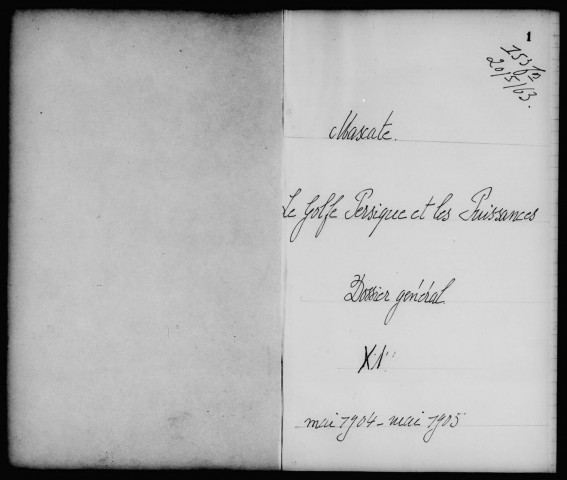 1
20/5/63.
Mascate.
Le Golfe Persique et les Puissances
Dossier général
mai 1904 - mai 1905